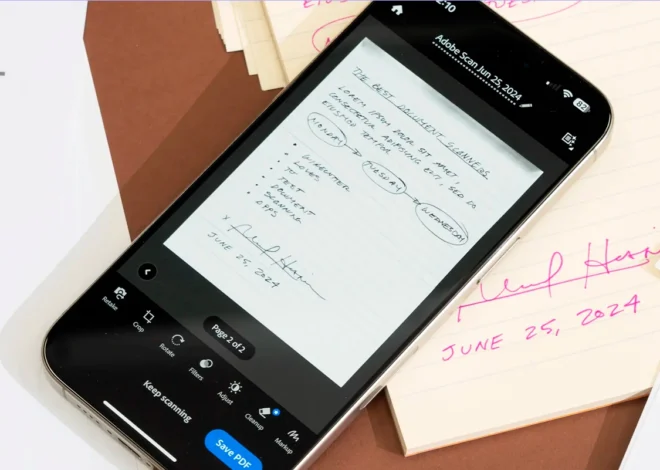 2:10
82
Adobe Scan Jun 25, 2024
THE BEST DOCUMENT SCANNERS
LOREM IPSUM DOLOR SIT AMET
CONSECTETUR ADIPISCING ELIT, SED DO
EIUSMOD TEMPOR
MONDAY → TUESDAY → WEDNESDAY
• WIRECUTTER
• LOVES
• TO TEST
• DOCUMENT
• SCANNING
• APPS
X
JUNE 25, 2024
Page 2 of 2
Retake
Crop
Rotate
Filters
Adjust
Cleanup
Markup
Keep scanning
Save PDF
JUNE 25, 2024